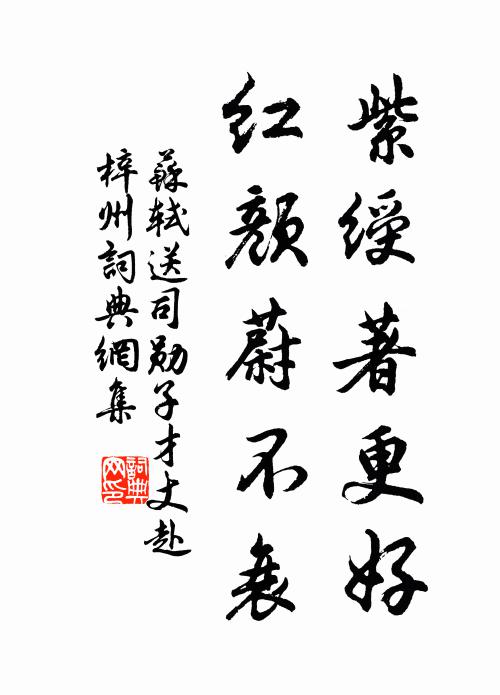 紫綬著更好
紅顏蔚不衰
蘇軾送司勛子才丈赴
梓州詞典網集
詞典
网印